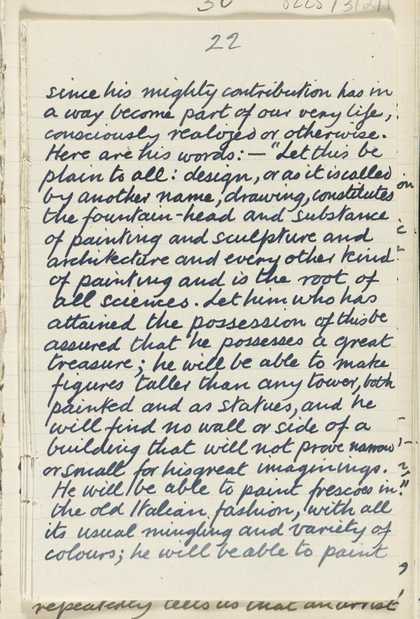 22
since his mighty contribution has in
a way become part of our very life,
consciously realized or otherwise.
Here are his words: — "Let this be
plain to all: design, or as it is called
by another name, drawing, constitutes
the fountain-head and substance
of painting and sculpture and
architecture and every other kind
of painting and is the root of
all sciences. Let him who has
attained the possession of this be
assured that he possesses a great
treasure; he will be able to make
figures taller than any tower, both
painted and as statues, and he
will find no wall or side of a
building that will not prove narrow
or small for his great imaginings.
He will be able to paint frescoes in
the old Italian fashion, with all
its usual mingling and variety of
colours; he will be able to paint
repeatedly tells us that an artist